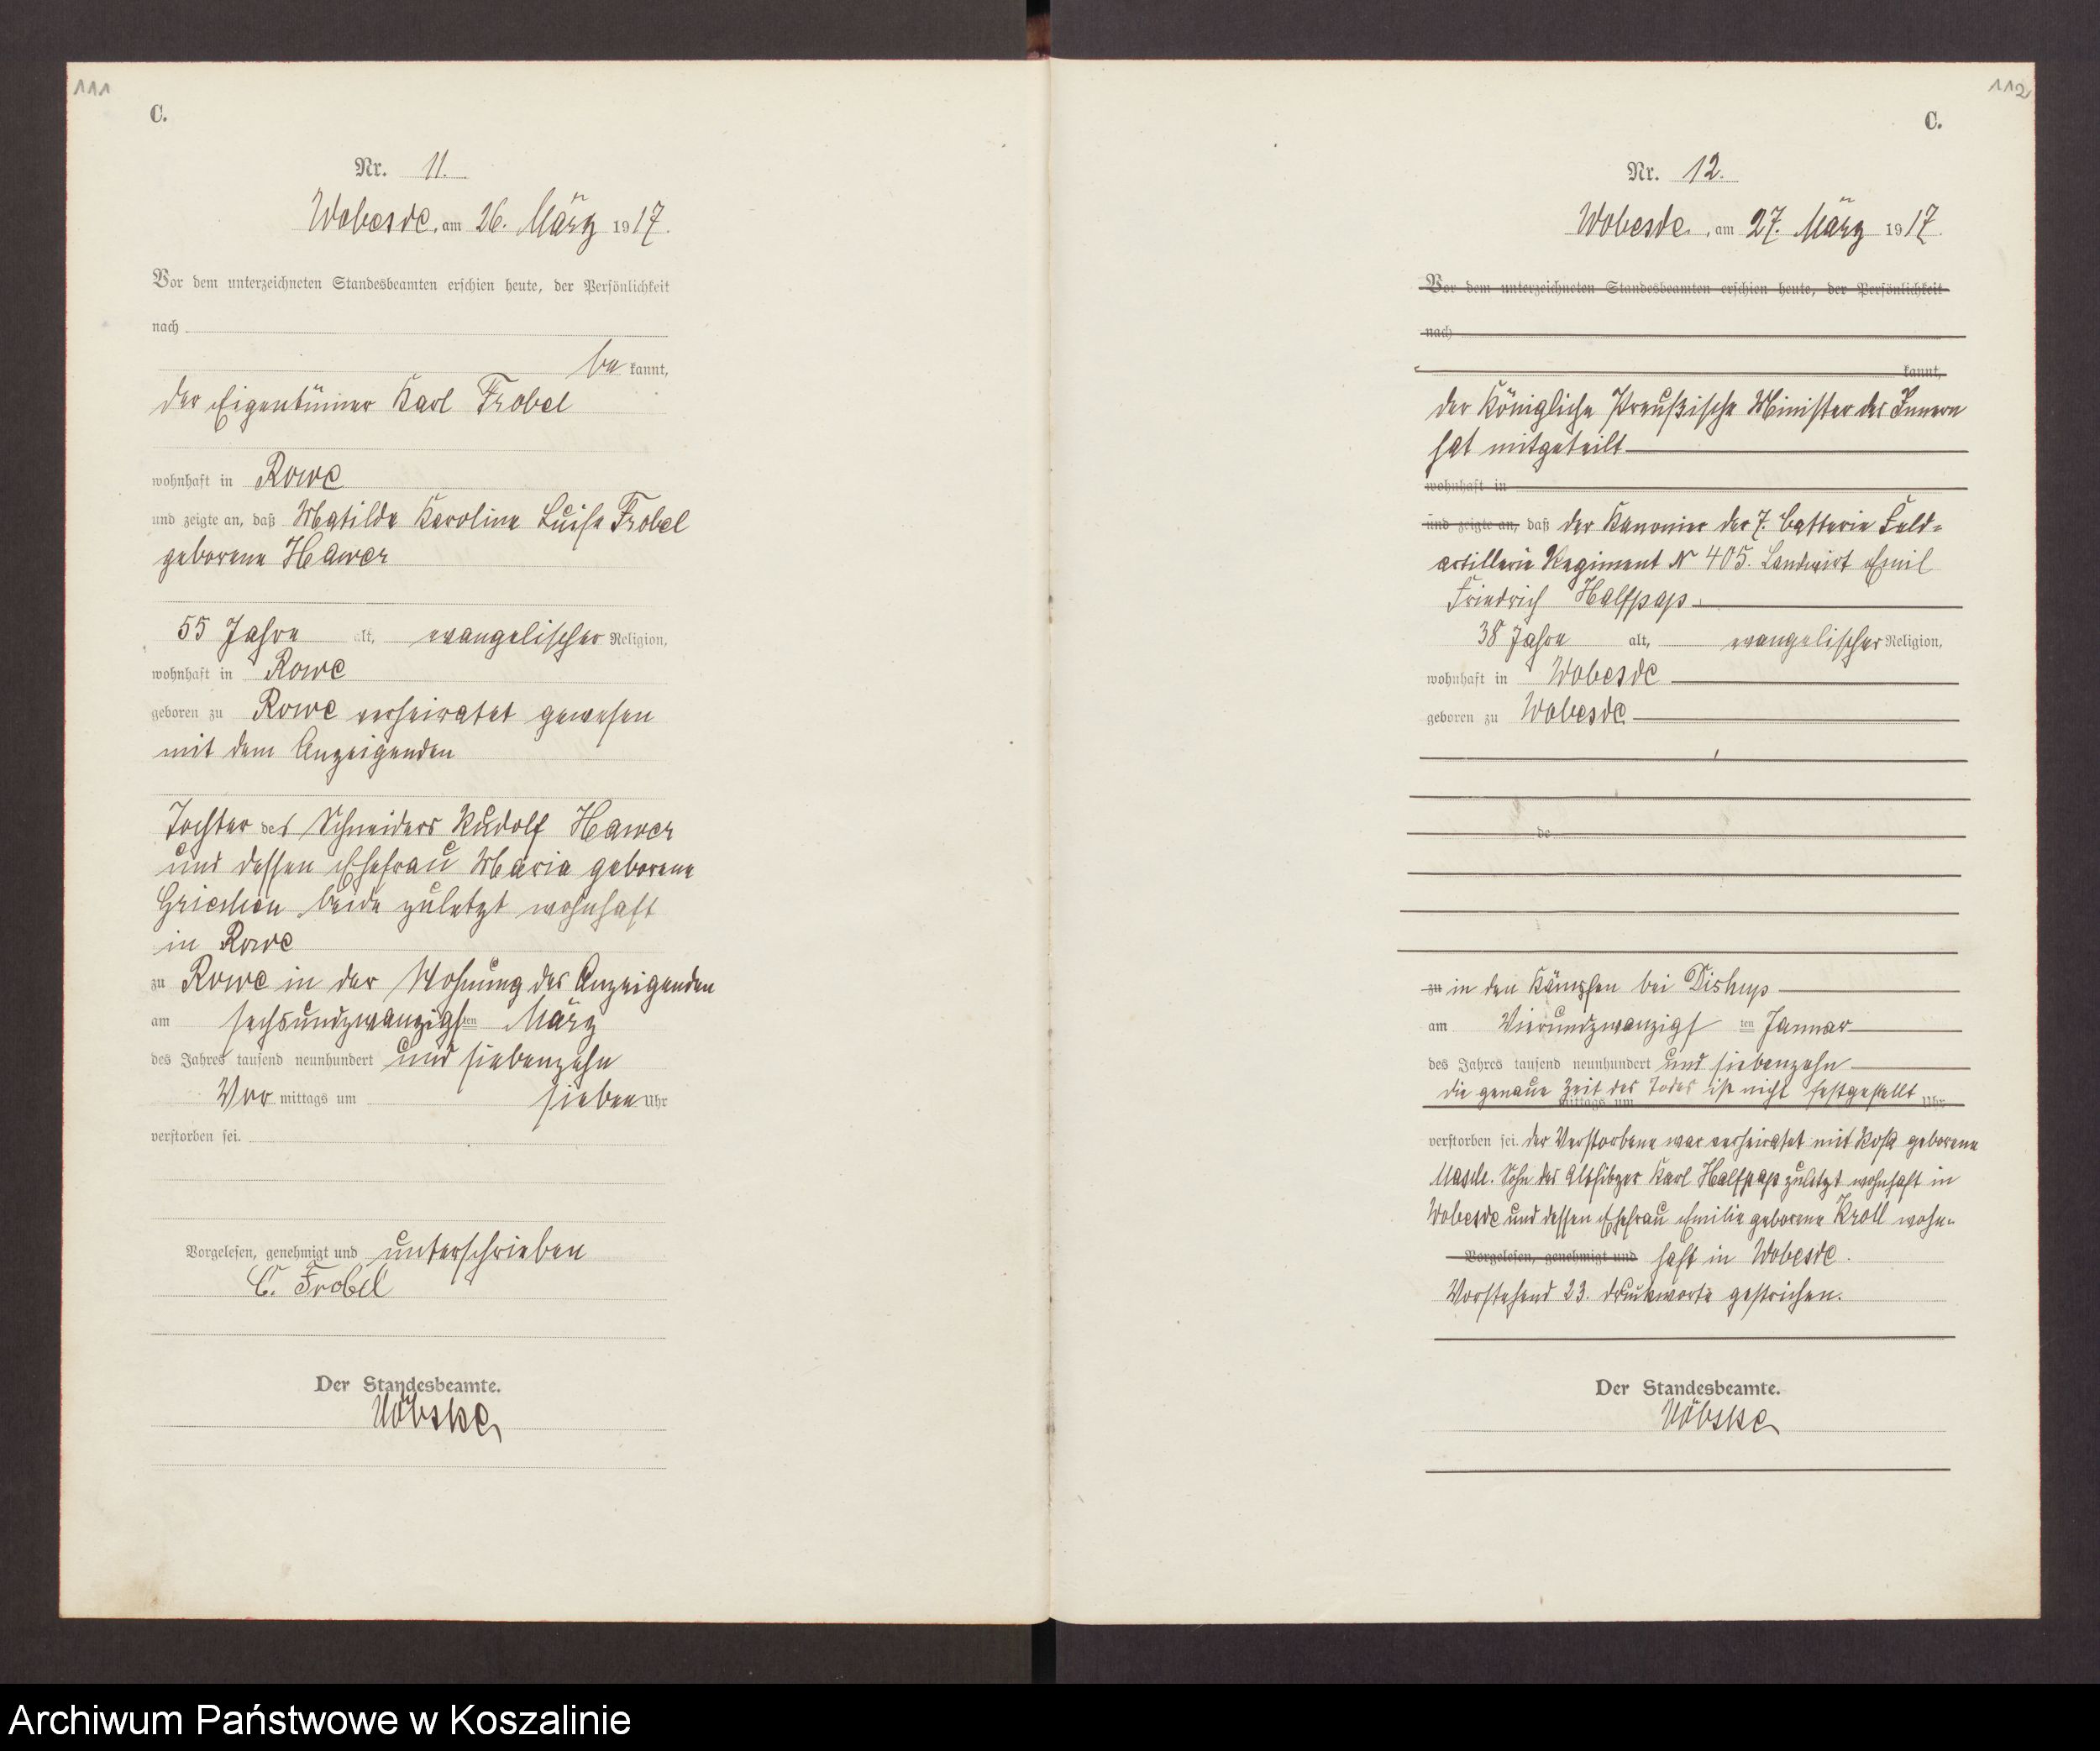 111
C.
Nr. 11.
Wobesde, am 26. März 1917.
Vor dem unterzeichneten Standesbeamten erschien heute, der Persönlichkeit
nach
be kannt,
der Eigentümer Karl Frobel
wohnhaft in Rowe
und zeigte an, daß Matilde Karoline Luise Frobel
geborene Hawer
55 Jahre alt, evangelischer Religion,
wohnhaft in Rowe
geboren zu Rowe verheiratet gewesen
mit dem Anzeigenden
Tochter des Schneiders Rudolf Hawer
und dessen Ehefrau Maria geborene
beide zuletzt wohnhaft
in Rowe
zu Rowe in der Wohnung des Anzeigenden
am sechsundzwanzigsten März
des Jahres tausend neunhundert und siebenzehn
Vor mittags um sieben Uhr
verstorben sei.
Vorgelesen, genehmigt und unterschrieben
C. Frobel
Der Standesbeamte.
112
C.
Nr. 12.
Wobesde, am 27. März 1917.
Vor dem unterzeichneten Standesbeamten erschien heute, der Persönlichkeit
nach
kannt,
der Königliche Preußische Minister des Innern
hat mitgeteilt
wohnhaft in
und zeigte an, daß der Kanonier der 7. Batterie Feld-
artillerie Regiment N 405. Landwirt Emil
Friedrich Halfpap
38 Jahre alt, evangelischer Religion,
wohnhaft in Wobesde
geboren zu Wobesde
de
zu in den Kämpfen bei Dishup
am Vierundzwanzigsten Januar
des Jahres tausend neunhundert und siebenzehn
die genaue Zeit des Todes ist nicht festgestellt
mittags um Uhr
verstorben sei. der Verstorbene war verheiratet mit Rosa geborene
Sohn des Altsitzer Karl Halfpap zuletzt wohnhaft in
Wobesde und dessen Ehefrau Emilie geborene Kroll wohn-
Vorgelesen, genehmigt und haft in Wobesde.
Vorstehend 23. Druckworte gestrichen.
Der Standesbeamte.
Archiwum Państwowe w Koszalinie